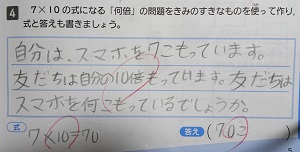 4 7×10の式になる「何倍」の問題をきみのすきなものを使って作り,
式と答えも書きましょう。
自分は、スマホを7こもっています。
友だちは自分の10倍もっています。友だちは
スマホを何こもっているでしょうか。
式 7×10=70 答え (70こ)
5